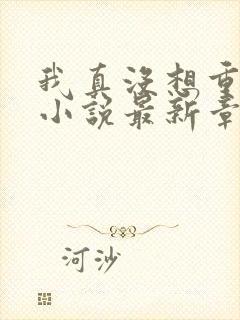 我真没想重
小说最新章
河沙